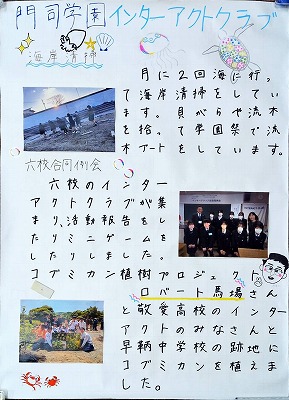 門司学園インターアクトクラブ
海岸清掃
月に2回海に行っ
て海岸清掃をしてい
ます。貝がらや流木
を拾って学園祭で流
木アートをしています。
六校合同例会
六校のインター
アクトクラブが集
まり、活動報告をし
たりミニゲームを
したりしました。
コブミカン植樹プロジェクト
ロバート馬場さん
と敬愛高校のインター
アクトのみなさんと
早鞆中学校の跡地に
コブミカンを植えま
した。